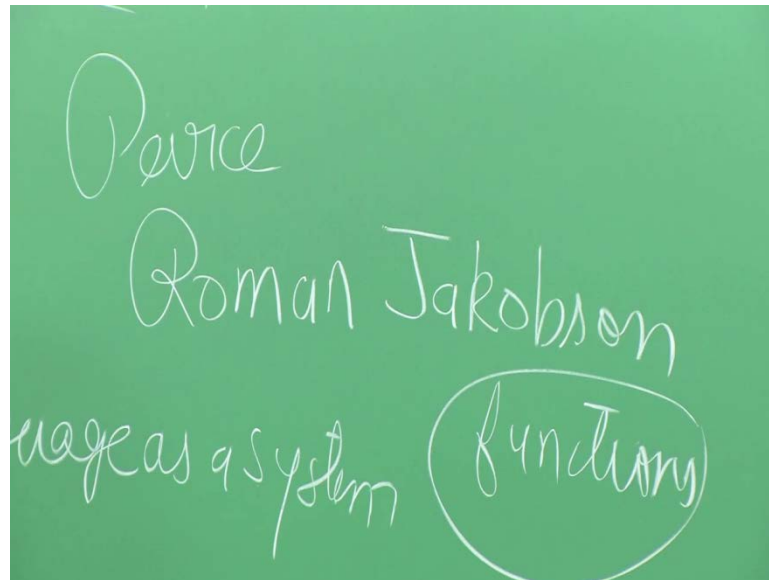 Peirce
Roman Jakobson
uage as a system functions